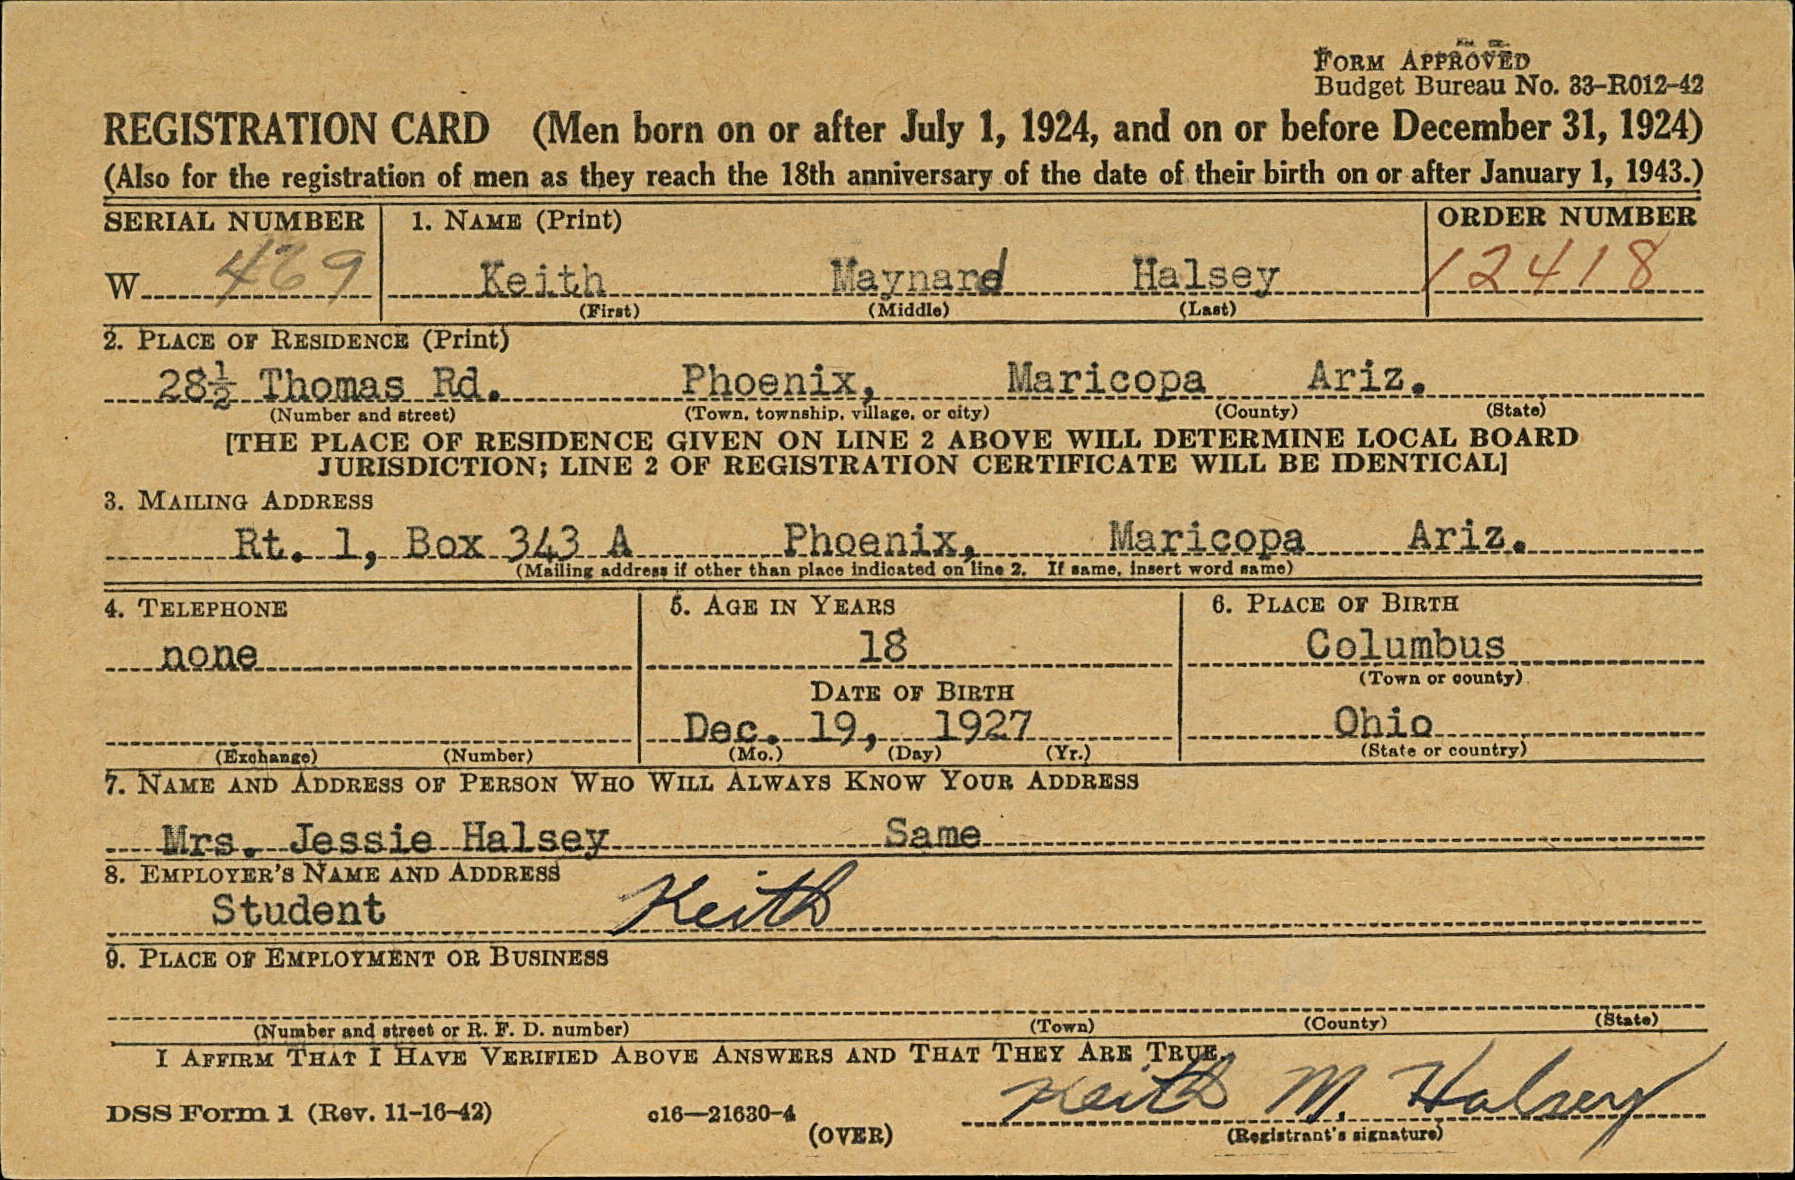 FORM APPROVED
Budget Bureau No. 33-R012-42
REGISTRATION CARD (Men born on or after July 1, 1924, and on or before December 31, 1924)
(Also for the registration of men as they reach the 18th anniversary of the date of their birth on or after January 1, 1943.)
SERIAL NUMBER 1. NAME (Print) ORDER NUMBER
W 469 Keith Maynard Halsey 12418
(First) (Middle) (Last)
2. PLACE OF RESIDENCE (Print)
28½ Thomas Rd. Phoenix, Maricopa Ariz.
(Number and street) (Town, township, village, or city) (County) (State)
[THE PLACE OF RESIDENCE GIVEN ON LINE 2 ABOVE WILL DETERMINE LOCAL BOARD
JURISDICTION; LINE 2 OF REGISTRATION CERTIFICATE WILL BE IDENTICAL]
3. MAILING ADDRESS
Rt. 1, Box 343 A Phoenix, Maricopa Ariz.
(Mailing address if other than place indicated on line 2. If same, insert word same)
4. TELEPHONE 5. AGE IN YEARS 6. PLACE OF BIRTH
none 18 Columbus
(Town or county)
DATE OF BIRTH
Dec. 19, 1927 Ohio
(Exchange) (Number) (Mo.) (Day) (Yr.) (State or country)
7. NAME AND ADDRESS OF PERSON WHO WILL ALWAYS KNOW YOUR ADDRESS
Mrs. Jessie Halsey Same
8. EMPLOYER'S NAME AND ADDRESS
Student Keith
9. PLACE OF EMPLOYMENT OR BUSINESS
(Number and street or R. F. D. number) (Town) (County) (State)
I AFFIRM THAT I HAVE VERIFIED ABOVE ANSWERS AND THAT THEY ARE TRUE.
Keith M. Halsey
DSS Form 1 (Rev. 11-16-42) c16—21630-4 (OVER) (Registrant's signature)